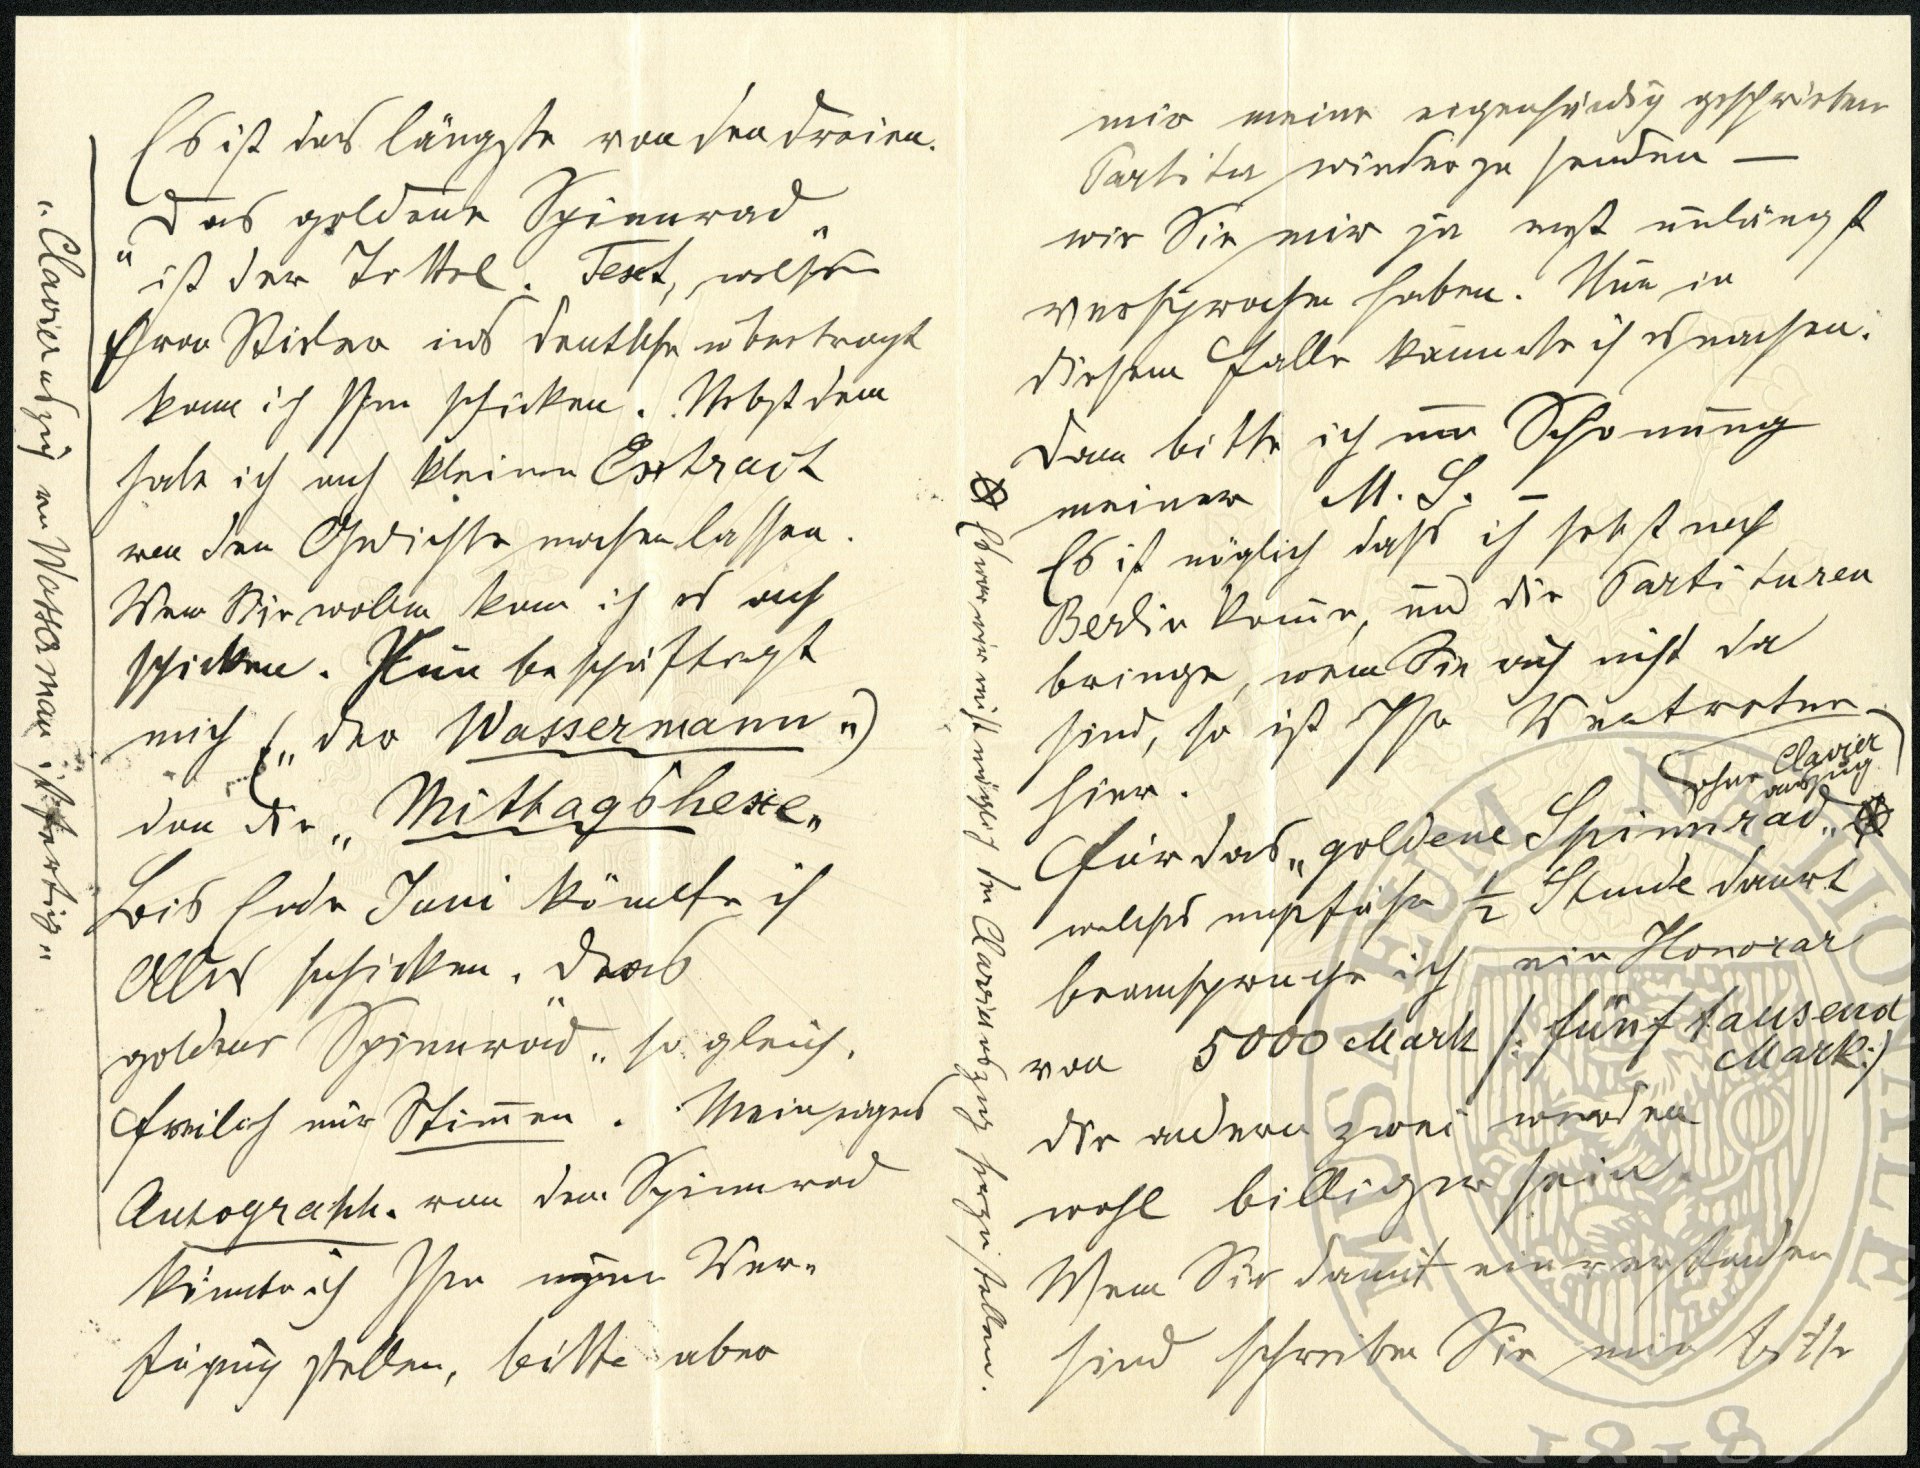 Es ist das längste von den dreien.
"Das goldene Spinnrad"
ist der Tittel. Text, welchen
von ins deutsche übertragt
kann ich Ihnen schicken. Nebstdem
habe ich auch kleinen Extract
von den Gedichte machen lassen.
Wenn Sie wollen kann ich es auch
schicken. Nun beschäftigt
mich ("der Wassermann")
dann die "Mittagshexe"
Bis Ende Juni könnte ich
Alles schicken. Das
goldene Spinnrad" sogleich.
freilich nur Stimmen. Mein eigenes
Autograph. von dem Spinnrad
könnte ich Ihnen Ver-
fügung stellen, bitte aber
"Clavierauszug von Wasserman ist fertig"
mir meine eigenhändig geschriebene
Partitur wieder zu senden —
wie Sie mir ja erst unlängst
versprochen haben. Nun in
diesem Falle könnte ich es machen.
Dann bitte ich um Schonung
meiner M. S. —
Es ist möglich dass ich selbst nach
Berlin komme, und die Partituren
bringe, wenn Sie auch nicht da
sind, so ist Ihr Vertreter
hier.
Für das "goldene Spinnrad"
(ohne Clavier
auszug
welches ungefähr ½ Stunde dauert
beanspruche ich ein Honorar
von 5000 Mark /: fünf tausend
Mark:/
die andern zwei werden
wohl billiger sein.
Wenn Sie damit einverstanden
sind schreiben Sie mir bitte
mir nicht möglich den Clavierauszug herzustellen.
MUSAEUM NATIONALE
1818